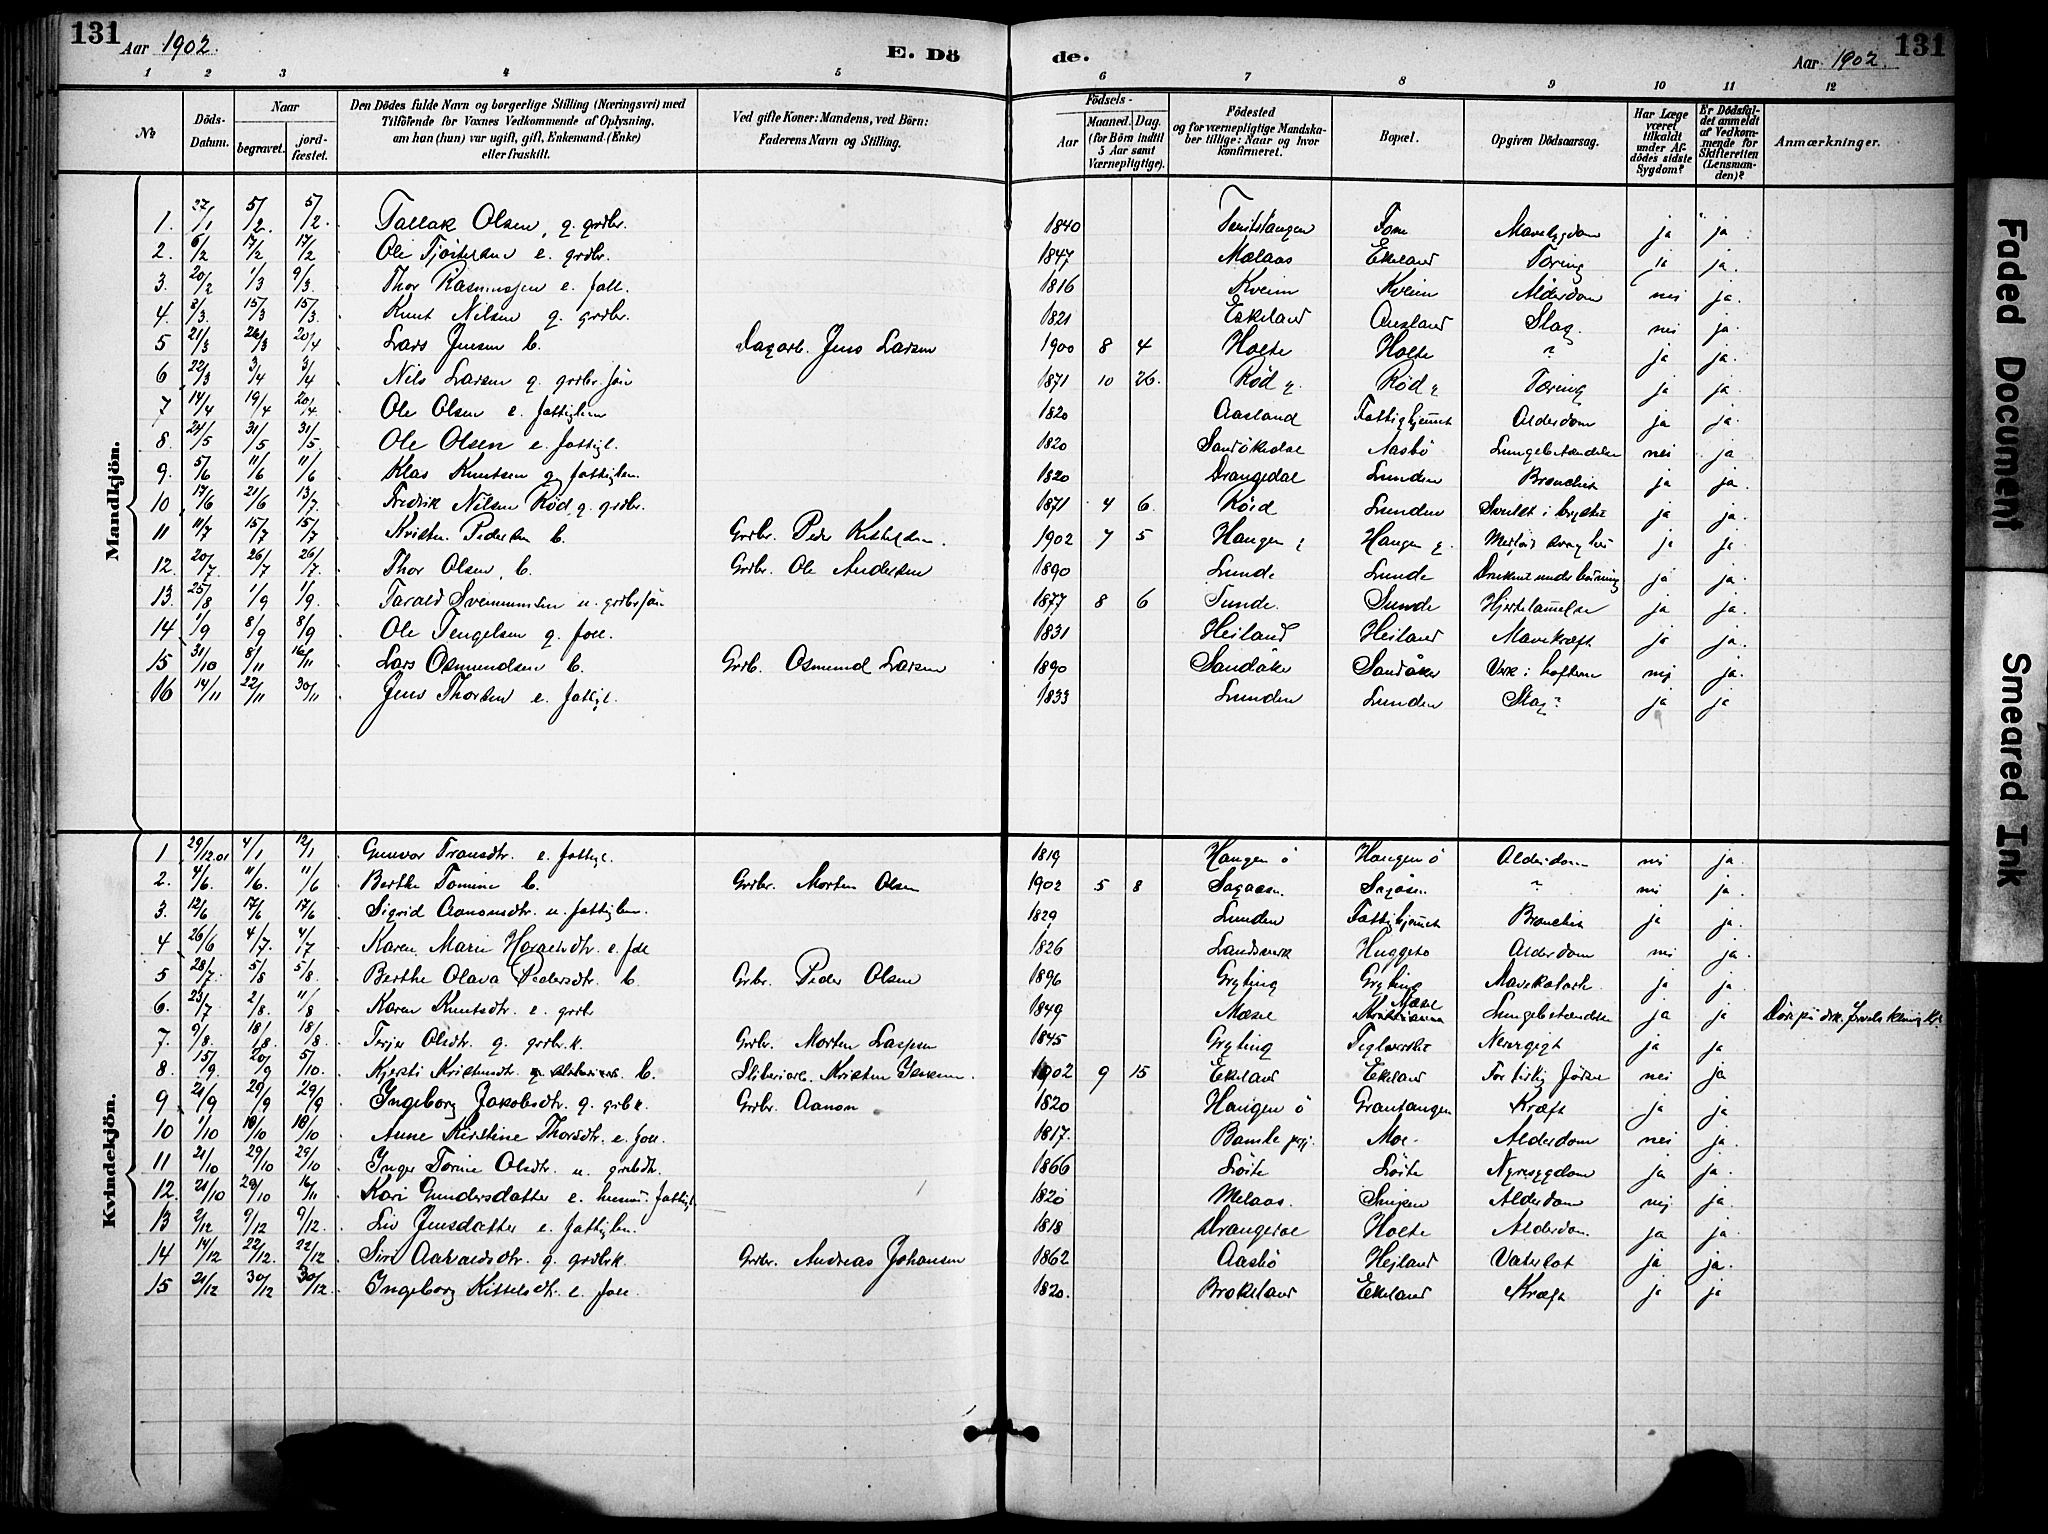 131 Aar 1902. E. Dö de. Aar 1902. 131
1 2 3 4 5 6 7 8 9 10 11 12
No Döds-Datum. Naar begravet. jordfæstet. Den Dödes fulde Navn og borgerlige Stilling (Næringsvei) med Tilföiende for Voxnes Vedkommende af Oplysning, om han (hun) var ugift, gift, Enkemand (Enke) eller fraskilt. Ved gifte Koner: Mandens, ved Börn: Faderens Navn og Stilling. Födsels- Aar Maaned. Dag. (for Börn indtil 5 Aar samt Værnepligtige). Födested og for værnepligtige Mandskaber tillige: Naar og hvor konfirmeret. Bopæl. Opgiven Dödsaarsag. Har Læge været tilkaldt under Afdödes sidste Sygdom? Er Dödsfaldet anmeldt af Vedkommende for Skifteretten (Lensmanden)? Anmærkninger.
Mandkjön.
1. 27/1 5/2. 5/2. Tallak Olsen, g. grdbr. 1840 Tom Mavesygdom ja ja
2. 6/2 17/2 17/2 Ole e. grdbr. 1847 Mælaas Ekeland Tæring " ja.
3. 20/2 1/3 9/3. Thor Rasmussen e. foll. 1816 Kveim Kveim Alderdom nei ja.
4. 8/3. 15/3 15/3. Knut Nilsen g. grdbr. 1821 Eskeland Ausland Slag. nei ja.
5 21/3 26/3 20/4 Lars Jensen b. Dagarb. Jens Larsen 1900 8 4 Holte Holte " ja ja.
6 22/3 3/4 3/4 Nils Larsen g. grdbr. sön 1871 10 26. Röd Röd Tæring ja ja.
7 14/4 19/4 20/4 Ole Olsen e. fattiglem 1820 Aasland Fattighjemmet Alderdom ja ja.
8. 24/5 31/5 31/5. Ole Olsen e. fattigl. 1820 Sandökedal Aasbö Lungebetændelse nei ja
9. 5/6 11/6 11/6 Klas Knutsen g. fattiglem. 1820 Drangedal Lunden Bronchit ja ja.
10 17/6 21/6 13/7. Fredrik Nilsen Röd g. grdbr. 1871 4 6. Röd Lunden Svulst i brystet ja ja.
11 11/7 15/7 15/7 Kristen Pedersen b. Grdbr. Peder Kittelsen. 1902 7 5 Haugen Haugen Medfödt svaghed ja ja.
12. 20/7. 26/7 26/7. Thor Olsen b. Grdbr. Ole Andersen 1890 Lunde Lunde Druknet under badning ja ja.
13. 25/8 1/9 1/9. Tarald Svenumsen u. grdbrsön 1877 8 6 Sunde. Sunde Hjertelammelse ja ja.
14 1/9 8/9 8/9 Ole Tengelsen g. foll. 1831 Heiland Heiland Mavekræft ja ja.
15 31/10 8/11 16/11 Lars Osmundsen b. Grdb. Osmund Larsen 1890 Sandåker Sandåker Værk i hoften nei ja.
16 14/11 22/11 30/11 Jens Thorsen e. fattigl. 1833 Lunden Lunden Slag ja ja
Kvindekjön.
1 29/12.01 4/1 12/1 Gunvor Fransdtr. e. fattigl. 1819 Haugen ö Haugen ö Alderdom nei ja.
2. 4/6. 11/6. 11/6 Berthe Tomine b. Grdbr. Morten Olsen 1902 5 8 Sagaasen Sagåsen " nei ja.
3. 12/6 17/6 17/6 Sigrid Aanonsdtr. u. fattiglem. 1829 Lunden Fattighjemmet Bronchit ja ja.
4 26/6 4/7. 4/7 Karen Marie Haraldsdtr. e. foll 1826 Landsverk Huggeto Alderdom nei ja.
5 28/7. 5/8 5/8. Berthe Olava Pedersdtr. b. Grbr. Peder Olsen 1896 Gryting Gryting Mavekatarh. ja ja.
6. 23/7 2/8. 11/8 Karen Knutsdtr. e. grdbr 1849 Mæsel Mæsel Kristiania Lungebetændelse ja ja
7. 9/8. 18/8. 18/8. Terjer Olsdtr. g. grdbr.k. Grdbr. Morten Larsen 1845 Gryting Teglverket Nervegigt ja ja
8. 15/9. 20/9 5/10. Kjersti Kristensdtr. b. Sliberiarb. Kristen Jensen. 1902 9 15 Ekeland Ekeland For tidlig född nei ja
9 21/9 29/9 29/9 Ingeborg Jakobsdtr. g. grbk. Grdbr. Aanon 1820 Haugen ö Grantangen Kræft ja ja
10 1/10 10/10 10/10 Anne Kirstine Thorsdtr. e. foll. 1817. Bamle prgj. Moe. Alderdom nei ja.
11 21/10 29/10 29/10 Inger Torine Olsdtr. u. grdbdtr. 1866 Löite Löite Nyresygdom ja ja.
12. 21/10 29/10 16/11 Kari Gundersdatter e. husm. fattigl. 1820 Melaas. Snipen Alderdom nei ja.
13 2/12 9/12 9/12. Liv Jensdatter e. fattiglem. 1818 Drangedal Holte Alderdom. ja ja.
14 14/12 22/12. 22/12 Siri Aavaldsdtr. g. grdbrk. Grdbr. Andreas Johansen 1862 Aasbö Hejland Vatersot ja ja.
15 21/12 30/12 30/12. Ingeborg Kittelsdtr. e. foll. 1820. Brokeland Ekeland Kræft ja ja
Faded Document
Smeared Ink